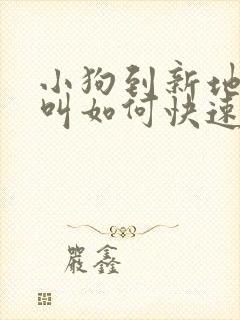 小狗到新地
叫如何快速
严鑫